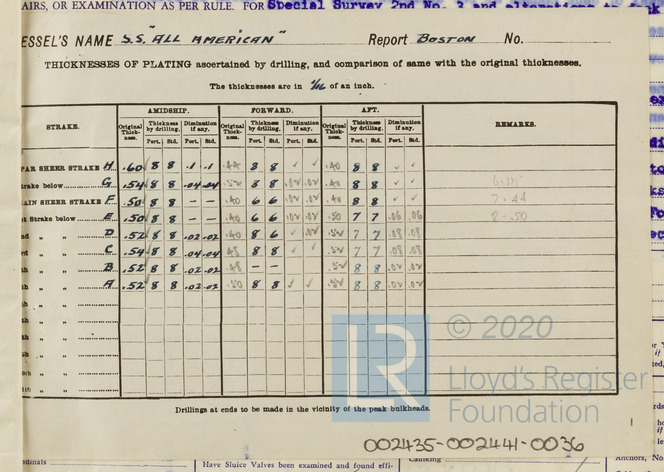 AIRS, OR EXAMINATION AS PER RULE. FOR Special Survey 2nd No. 3 and alterations to
ESSEL'S NAME S.S. "ALL AMERICAN" Report BOSTON No.
THICKNESSES OF PLATING ascertained by drilling, and comparison of same with the original thicknesses.
The thicknesses are in 1/16 of an inch.
STRAKE. AMIDSHIP. FORWARD. AFT. REMARKS.
Original Thick- ness. Thickness by drilling. Diminution if any. Original Thick- ness. Thickness by drilling. Diminution if any. Original Thick- ness. Thickness by drilling. Diminution if any.
Port. Std. Port. Std. Port. Std. Port. Std. Port. Std. Port. Std.
AR SHEER STRAKE H .60 8 8 .1 .1 .44 8 8 ✓ ✓ .40 8 8 ✓ ✓
trake below G .54 8 8 .04 .04 8 8 .40 8 8 ✓ ✓
AIN SHEER STRAKE F .50 8 8 – – .40 6 6 .40 8 8 ✓ ✓ 7.44
t Strake below E .50 8 8 – – .40 6 6 .50 7 7 .06 .06 8.50
nd " " D .52 8 8 .02 .02 .40 8 6 7 7 .08 .08
rd " " C .54 8 8 .04 .04 .48 8 8 ✓ ✓ 7 7 .08 .08
th " " B .52 8 8 .02 .02 .48 – – 8 8
th " " A .52 8 8 .02 .02 .50 8 8 ✓ ✓ 8 8
th " "
th " "
th " "
th " "
th " "
th " "
Drillings at ends to be made in the vicinity of the peak bulkheads.
LR
© 2020
Lloyd's Register
Foundation
002435-002441-0036
Have Sluice Valves been examined and found effi-
Caulking
Anchors, No